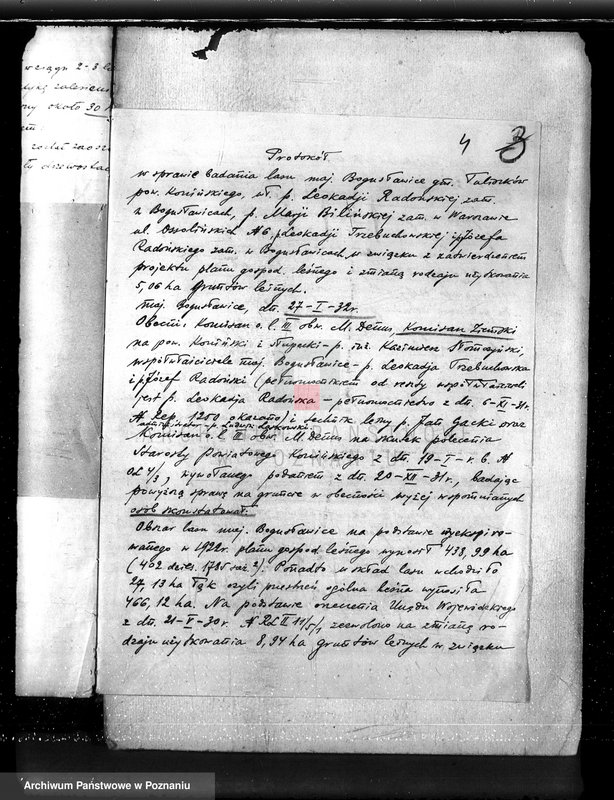 w ciągu 2-3 la
około 30
4 3
Protokół
w sprawie badania lasu maj. Bogusławice gm. Tuliszków
pow. Konińskiego, wł. p. Leokadji Radońskiej zam.
w Bogusławicach, p. Marji Bilińskiej zam. w Warszawie
ul. Ossolińskich № 6, p. Leokadji Trzebuchowskiej i p. Józefa
Radońskiego zam. w Bogusławicach, w związku z zatwierdzeniem
projektu planu gospod. leśnego i zmianą rodzaju użytkowania
5,06 ha gruntów leśnych.
Maj. Bogusławice, dn. 27-I-32r.
Obecni: Komisarz o.l. III obw. M. Demus, Komisarz Ziemski
na pow. Koniński i Słupecki - p. inż. Kazimierz
współwłaściciele maj. Bogusławice - p. Leokadja Trzebuchowska
i p. Józef Radoński (pełnomocnikiem od reszty współwłaścicieli
jest p. Leokadja Radońska - pełnomocnictwo z dn. 6-XI-31r.
№ Rep. 1250 okazano) i technik leśny p. Jan Gacki oraz
administrator p. Ludwik
Komisarz o.l. III obw. M. Demus na skutek polecenia
Starosty Powiatowego Konińskiego z dn. 19-I-r.b. №
OL 4/3, wywołanego podaniem z dn. 20-XII-31r., badając
powyższą sprawę na gruncie w obecności wyżej wspomnianych
osób skonstatował:
Obszar lasu maj. Bogusławice na podstawie wyekspiro-
wanego w 1922r. planu gospod. leśnego wynosił 438,99 ha
(402 dzies. 1785 saż²). Ponadto w skład lasu wchodziło
27,13 ha łąk czyli przestrzeń ogólna leśna wynosiła
466,12 ha. Na podstawie orzeczenia Urzędu Wojewódzkiego
z dn. 21-V-30r. № RL II 11/5/1 zezwolono na zmianę ro-
dzaju użytkowania 8,94 ha gruntów leśnych w związku
Archiwum Państwowe w Poznaniu